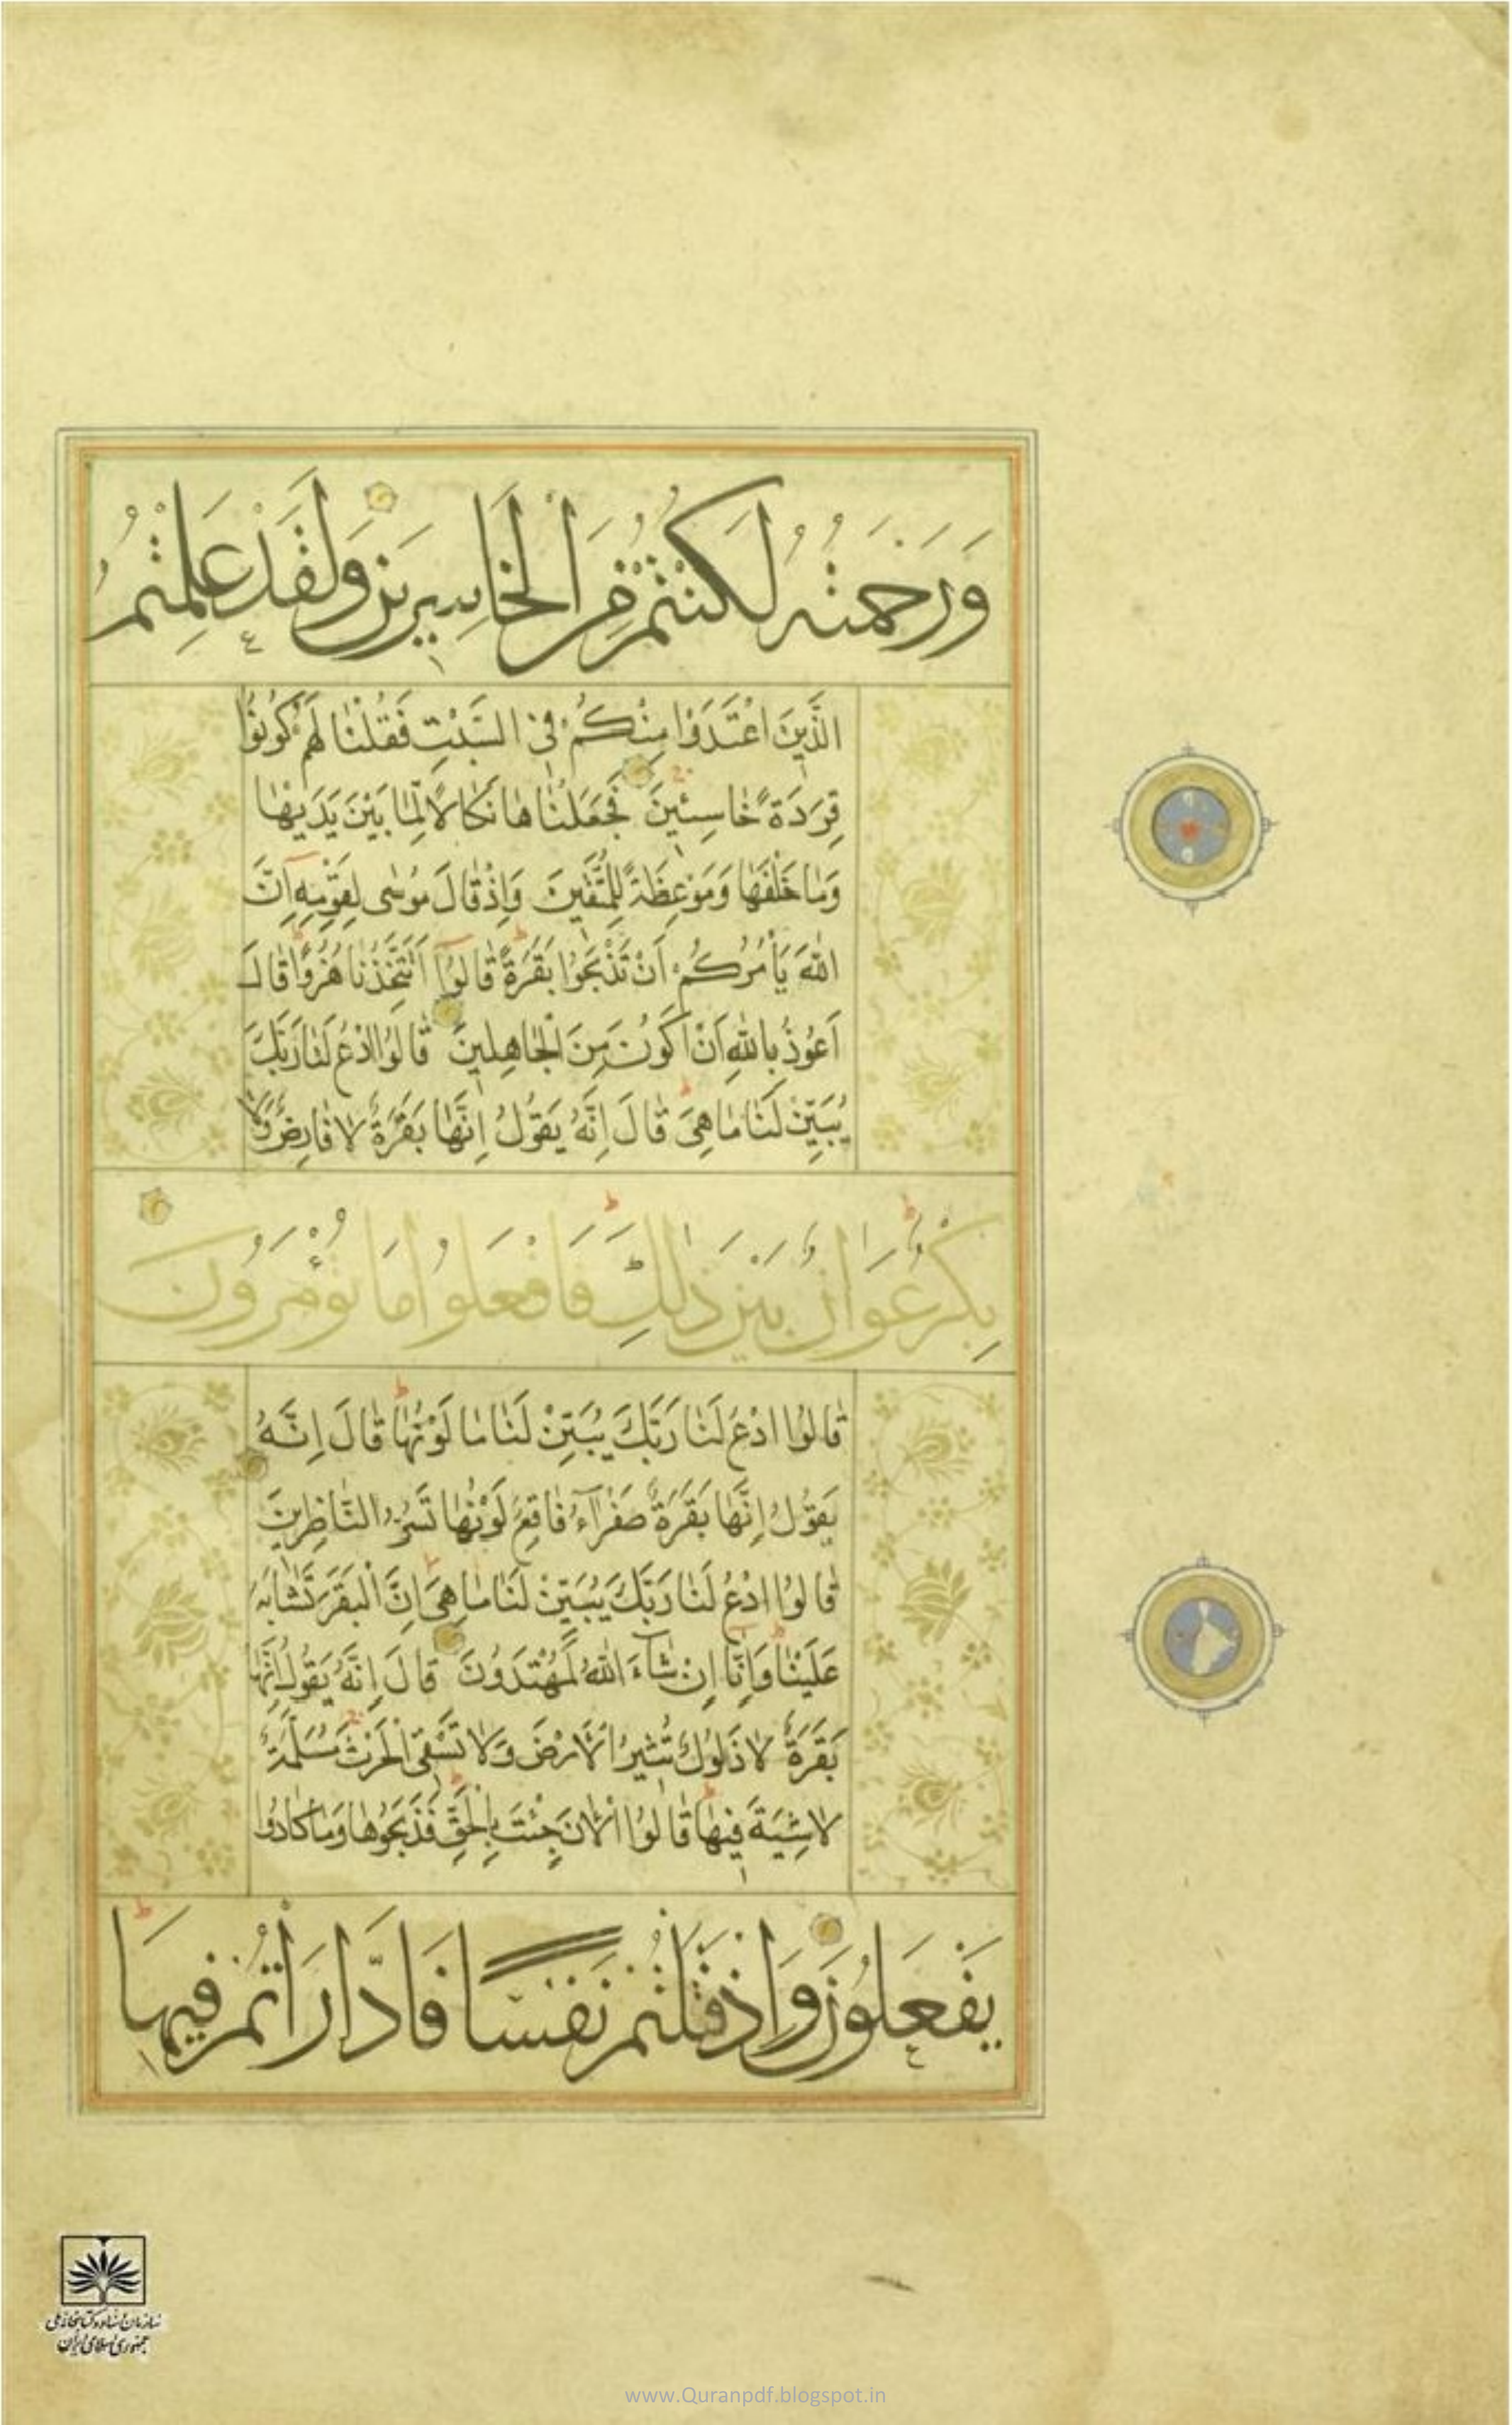 وَرَحْمَتُهُ لَكُنْتُمْ مِنَ الْخَاسِرِينَ وَلَقَدْ عَلِمْتُمُ
الَّذِينَ اعْتَدَوْا مِنْكُمْ فِي السَّبْتِ فَقُلْنَا لَهُمْ كُونُوا
قِرَدَةً خَاسِئِينَ فَجَعَلْنَاهَا نَكَالًا لِمَا بَيْنَ يَدَيْهَا
وَمَا خَلْفَهَا وَمَوْعِظَةً لِلْمُتَّقِينَ وَإِذْ قَالَ مُوسَى لِقَوْمِهِ إِنَّ
اللَّهَ يَأْمُرُكُمْ أَنْ تَذْبَحُوا بَقَرَةً قَالُوا أَتَتَّخِذُنَا هُزُوًا قَالَ
أَعُوذُ بِاللَّهِ أَنْ أَكُونَ مِنَ الْجَاهِلِينَ قَالُوا ادْعُ لَنَا رَبَّكَ
يُبَيِّنْ لَنَا مَا هِيَ قَالَ إِنَّهُ يَقُولُ إِنَّهَا بَقَرَةٌ لَا فَارِضٌ وَلَا
بِكْرٌ عَوَانٌ بَيْنَ ذَلِكَ فَافْعَلُوا مَا تُؤْمَرُونَ
قَالُوا ادْعُ لَنَا رَبَّكَ يُبَيِّنْ لَنَا مَا لَوْنُهَا قَالَ إِنَّهُ
يَقُولُ إِنَّهَا بَقَرَةٌ صَفْرَآءُ فَاقِعٌ لَوْنُهَا تَسُرُّ النَّاظِرِينَ
قَالُوا ادْعُ لَنَا رَبَّكَ يُبَيِّنْ لَنَا مَا هِيَ إِنَّ الْبَقَرَ تَشَابَهَ
عَلَيْنَا وَإِنَّا إِنْ شَآءَ اللَّهُ لَمُهْتَدُونَ قَالَ إِنَّهُ يَقُولُ إِنَّهَا
بَقَرَةٌ لَا ذَلُولٌ تُثِيرُ الْأَرْضَ وَلَا تَسْقِي الْحَرْثَ مُسَلَّمَةٌ
لَا شِيَةَ فِيهَا قَالُوا الْآنَ جِئْتَ بِالْحَقِّ فَذَبَحُوهَا وَمَا كَادُوا
يَفْعَلُونَ وَإِذْ قَتَلْتُمْ نَفْسًا فَادَّارَأْتُمْ فِيهَا
سازمان اسناد و کتابخانه ملی
جمهوری اسلامی ایران
www.Quranpdf.blogspot.in